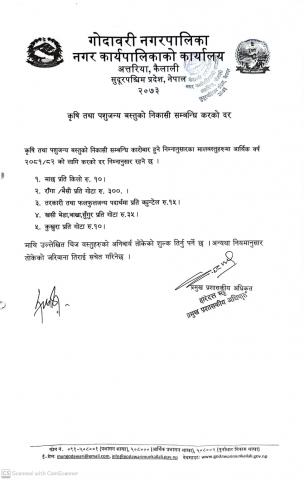 गोदावरी नगरपालिका
नगर कार्यपालिकाको कार्यालय
अत्तरिया, कैलाली
सुदूरपश्चिम प्रदेश, नेपाल
२०७३
कृषि तथा पशुजन्य बस्तुको निकासी सम्बन्धि करको दर
कृषि तथा पशुजन्य बस्तुको निकासी सम्बन्धि कारोबार हुने निम्नानुसारका मालबस्तुहरुमा आर्थिक वर्ष
२०८१/८२ को लागि करको दर निम्नानुसार रहने छ ।
१. माछ प्रति किलो रु. १०।
२. राँगा /भैसी प्रति गोटा रु. ३००. ।
३. तरकारी तथा फलफुलजन्य पदार्थमा प्रति क्युन्टेल रु.१५।
४. खसी भेडा,बाख्रा,सुँगुर प्रति गोटा रु.३५।
५. कुखुरा प्रति गोटा रु.१०।
माथि उल्लेखित चिज बस्तुहरुको अनिवार्य तोकेको शुल्क तिर्नु पर्ने छ । अन्यथा नियमानुसार
तोकेको जरिवाना तिराई सचेत गरिनेछ ।
प्रमुख प्रशासकीय अधिकृत
हरिदत्त भट्ट
प्रमुख प्रशासकीय अधिकृत
फोन नं. ०९१-५५०००१
ई-मेल: mungodawari@gmail.com, info@godawarimunkailali.gov.np वेबसाइट: www.godawarimunkailali.gov.np
CS Scanned with CamScanner